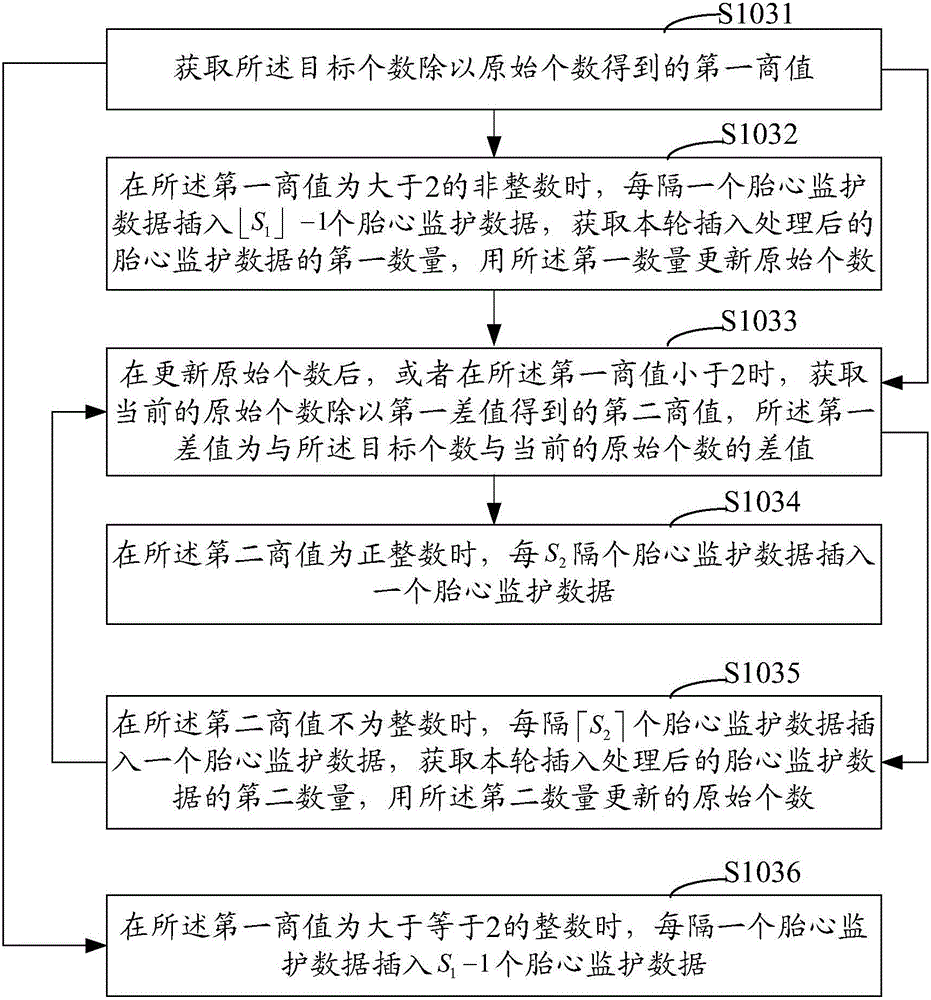 S1031
获取所述目标个数除以原始个数得到的第一商值
S1032
在所述第一商值为大于2的非整数时，每隔一个胎心监护
数据插入⌊S₁⌋-1个胎心监护数据，获取本轮插入处理后的
胎心监护数据的第一数量，用所述第一数量更新原始个数
S1033
在更新原始个数后，或者在所述第一商值小于2时，获取
当前的原始个数除以第一差值得到的第二商值，所述第一
差值为与所述目标个数与当前的原始个数的差值
S1034
在所述第二商值为正整数时，每S₂隔个胎心监护数据插入
一个胎心监护数据
S1035
在所述第二商值不为整数时，每隔⌈S₂⌉个胎心监护数据插
入一个胎心监护数据，获取本轮插入处理后的胎心监护数
据的第二数量，用所述第二数量更新的原始个数
S1036
在所述第一商值为大于等于2的整数时，每隔一个胎心监
护数据插入S₁-1个胎心监护数据